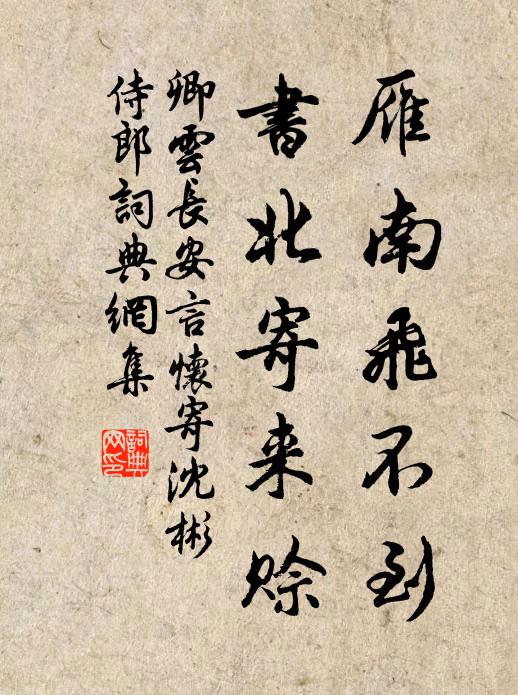 雁南飛不到
書北寄来賒
卿雲長安言懷寄沈彬
侍郎詞典網集
詞典
网印